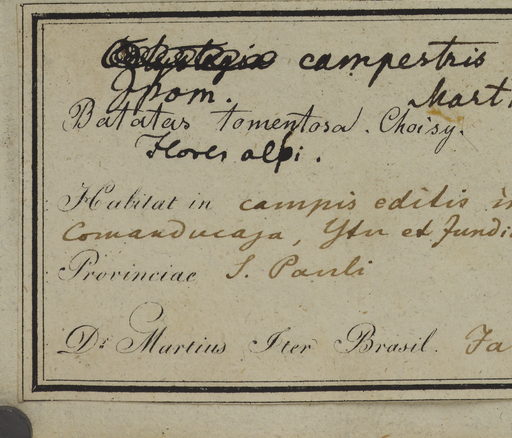 campestris
Ipom. Mart
Batatas tomentosa. Choisy.
Flores albi.
Habitat in campis editis in
Comanducaja, Ytu et Jundi
Provinciae S. Pauli
Dr. Martius Iter Brasil. Ja